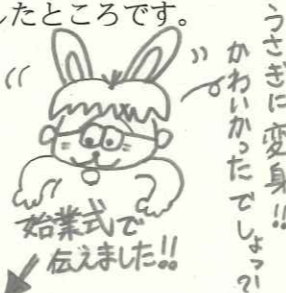 したところです。
うさぎに変身!!
かわいかったでしょっ?!
始業式で
伝えました!!